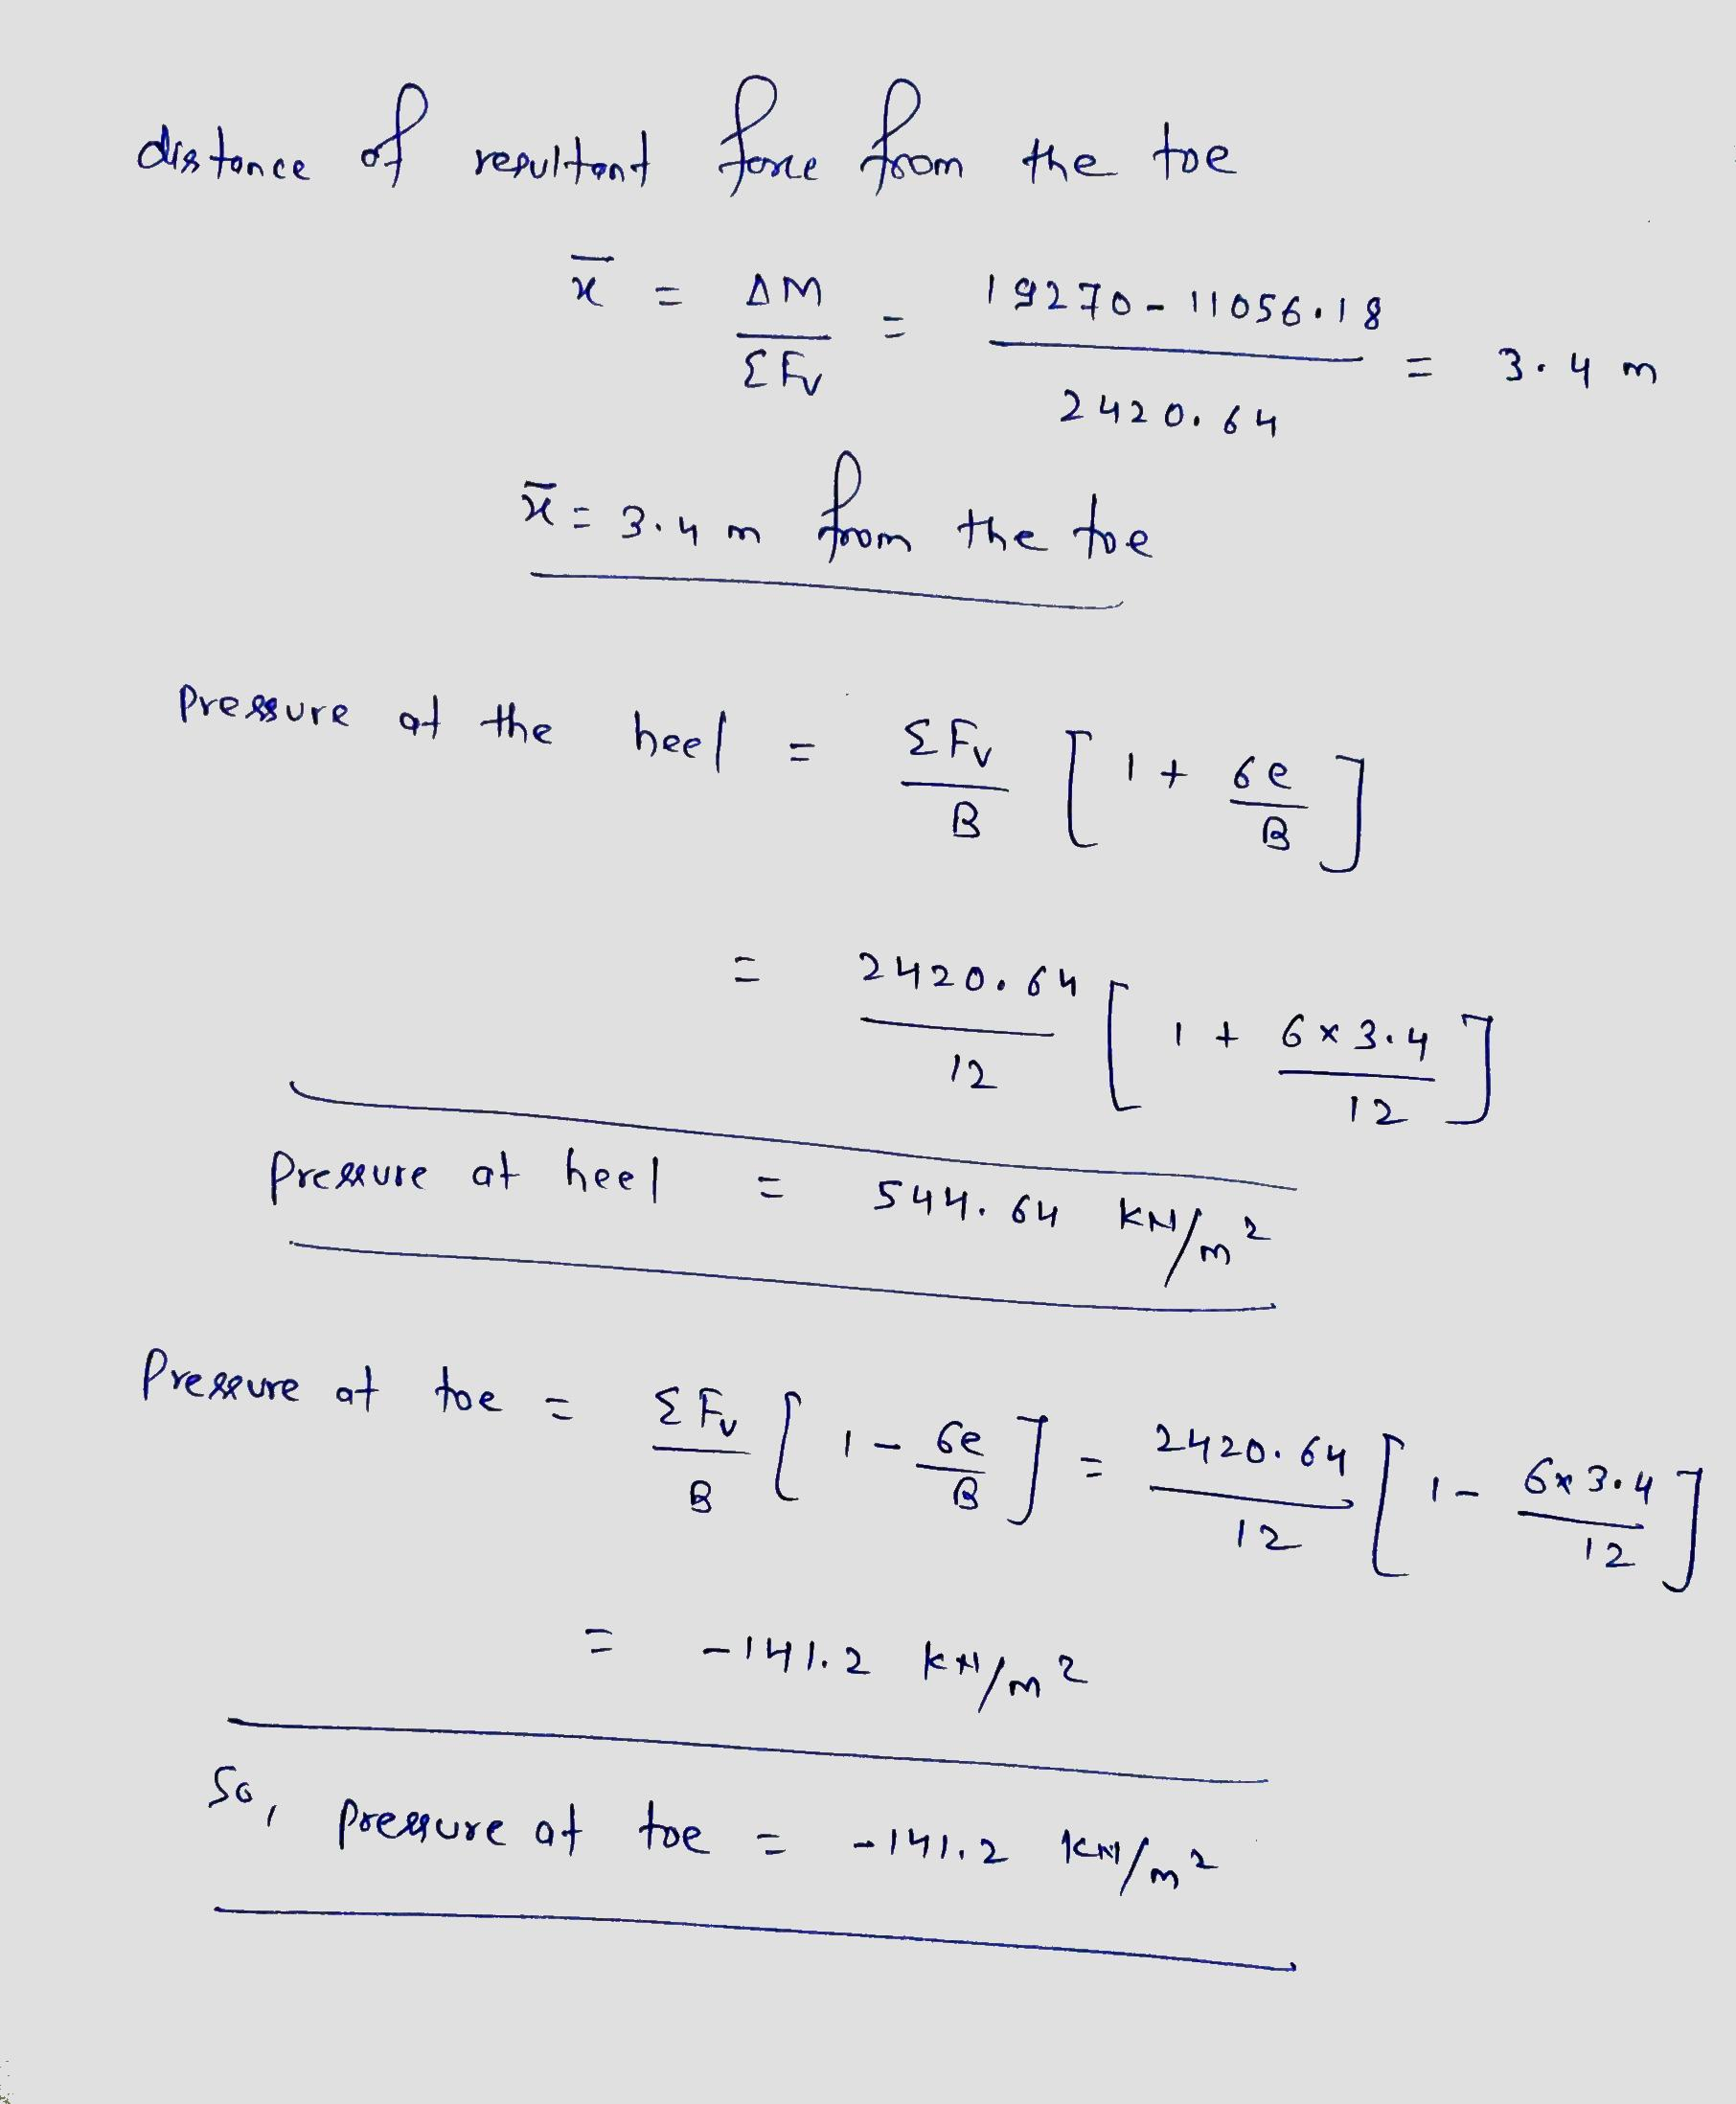 distance of resultant force from the toe
x̄ = ΔM / ΣFv = 19270 - 11056.18 / 2420.64 = 3.4 m
x̄ = 3.4 m from the toe
Pressure at the heel = ΣFv / B [ 1 + 6e / B ]
= 2420.64 / 12 [ 1 + 6 x 3.4 / 12 ]
Pressure at heel = 544.64 KN/m²
Pressure at toe = ΣFv / B [ 1 - 6e / B ] = 2420.64 / 12 [ 1 - 6x3.4 / 12 ]
= -141.2 KN/m²
So, pressure at toe = -141.2 KN/m²